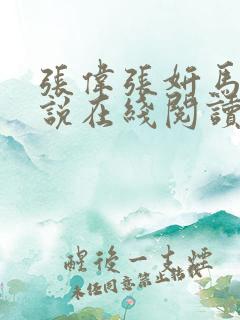 張偉張妍馬
說在綫閱讀
醒後一支煙
未任同意禁止轉載